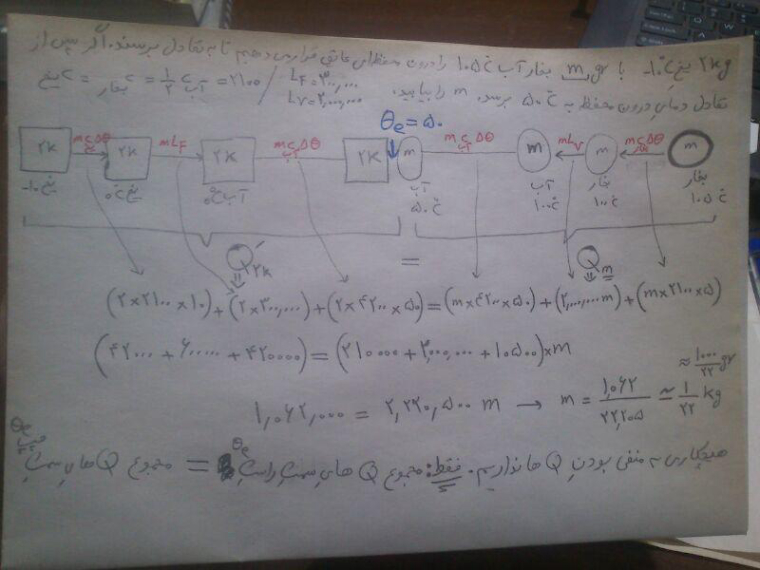 ۲kg یخ ۱۰- C° با m gr بخار آب ۱۰۵ C° را درون محفظه‌ای عایق قرار می دهیم تا به تعادل برسند. اگر پس از
تعادل دمای درون محفظه به ۵۰ C° برسد. m را بیابید. L_F = ۳۰۰,۰۰۰ / ۲۱۰۰ = c آب ۱/۲ = c بخار = c یخ
L_V = ۲,۰۰۰,۰۰۰
θe = ۵۰
mcΔθ یخ mL_F mcΔθ آب mcΔθ آب mL_V mcΔθ بخار
۲K ۲K ۲K ۲K m m m m
یخ ۱۰- یخ ۰C° آب ۰C° آب ۵۰ C° آب ۱۰۰C° بخار ۱۰۰ C° بخار ۱۰۵ C°
Q ۲K = Q m
(۲×۲۱۰۰×۱۰) + (۲×۳۰۰,۰۰۰) + (۲×۴۲۰۰×۵۰) = (m×۴۲۰۰×۵۰) + (۲,۰۰۰,۰۰۰m) + (m×۲۱۰۰×۵)
(۴۲۰۰۰ + ۶۰۰۰۰۰ + ۴۲۰۰۰۰) = (۲۱۰۰۰۰ + ۲,۰۰۰,۰۰۰ + ۱۰۵۰۰)×m
۱,۰۶۲,۰۰۰ = ۲,۲۲۰,۵۰۰ m → m = ۱,۰۶۲ / ۲۲,۲۰۵ ≃ ۱/۲۲ kg ≈ ۱۰۰۰/۲۲ gr
هیچکاری به منفی بودن Q ها نداریم. فقط: مجموع Q های سمت راست θe = مجموع Q های سمت چپ θe